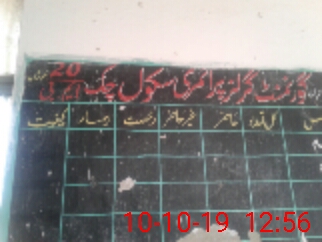 گورنمنٹ گرلز پرائمری سکول چک 20
کل تعداد حاضر غیر حاضر رخصت بیمار کیفیت
10-10-19 12:56